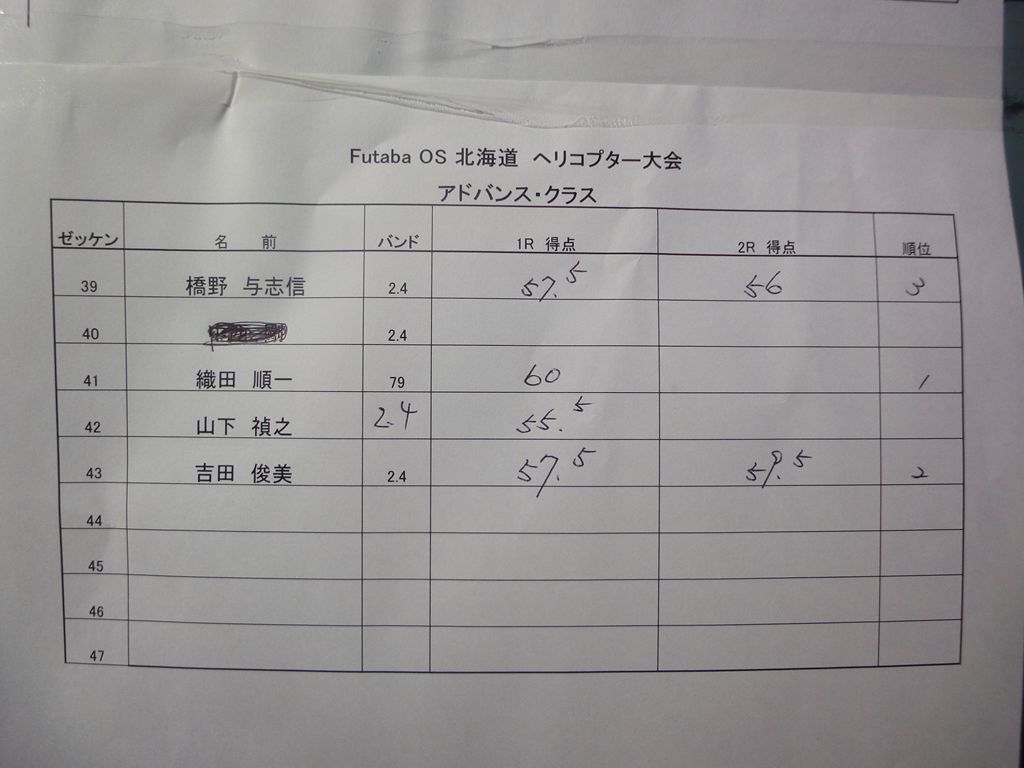 Futaba OS 北海道 ヘリコプター大会
アドバンス・クラス
ゼッケン 名 前 バンド 1R 得点 2R 得点 順位
39 橋野 与志信 2.4 57.5 56 3
40 2.4
41 織田 順一 79 60 1
42 山下 禎之 2.4 55.5
43 吉田 俊美 2.4 57.5 59.5 2
44
45
46
47